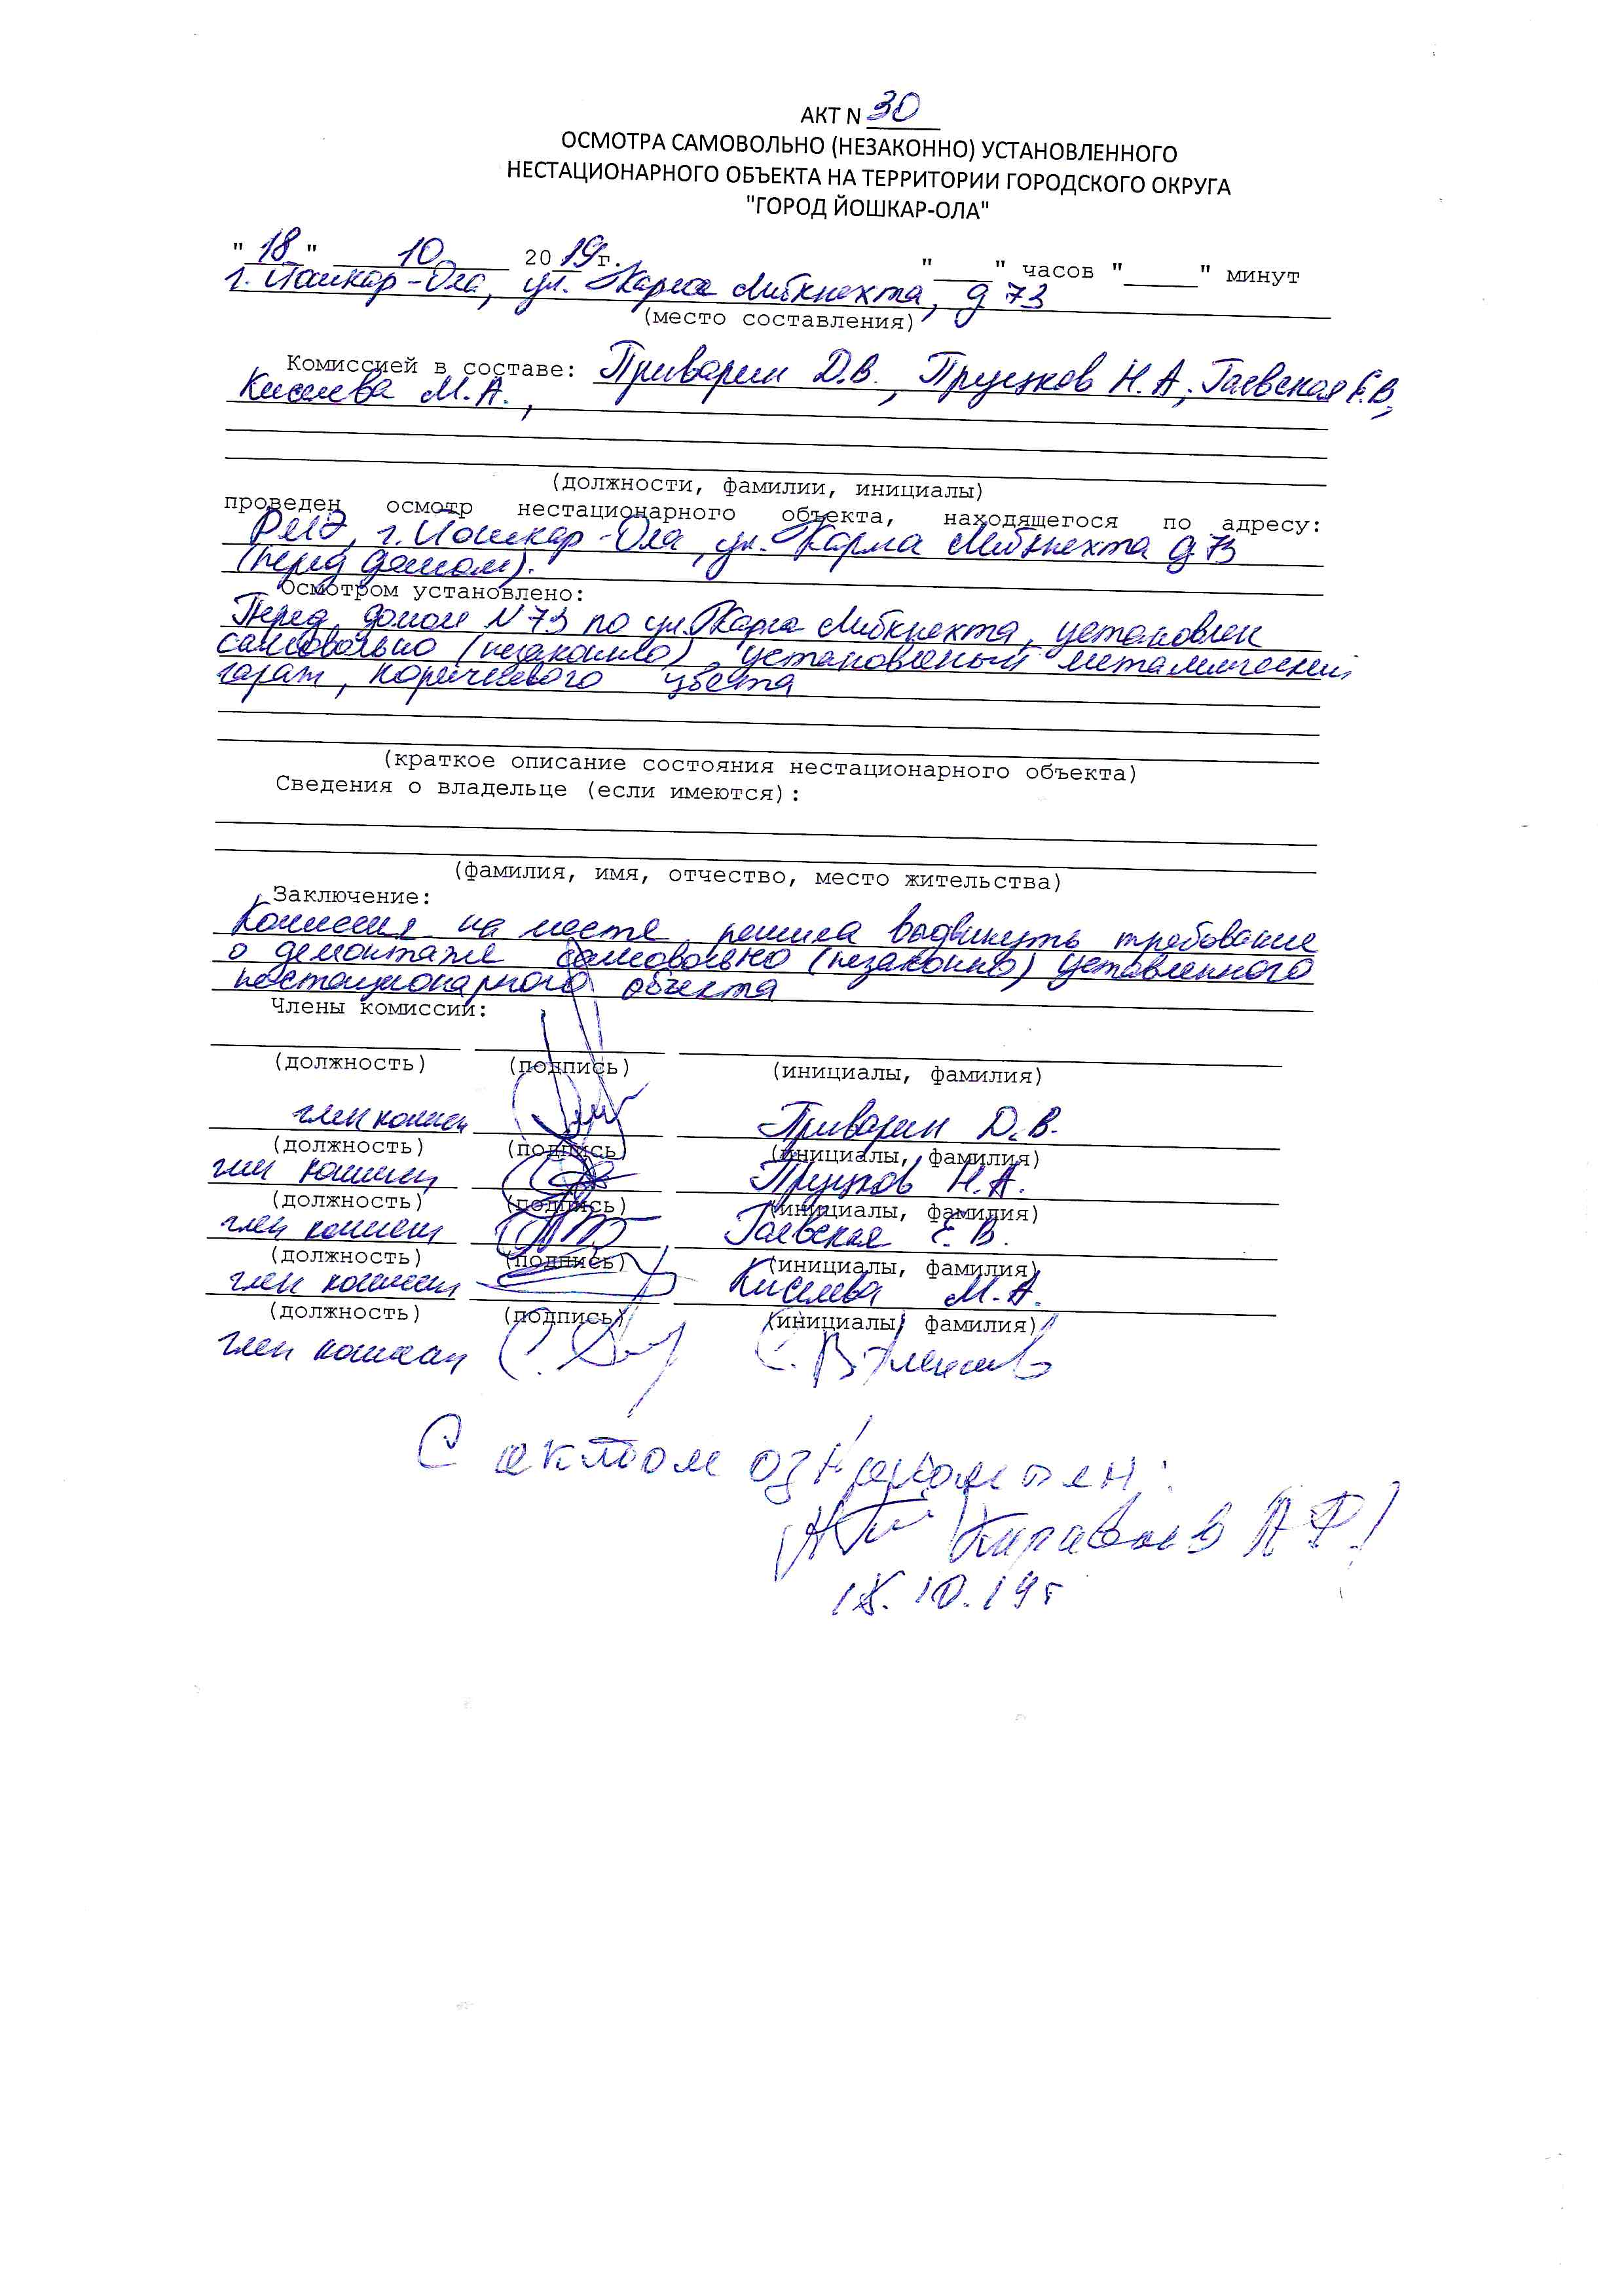 АКТ N 30
ОСМОТРА САМОВОЛЬНО (НЕЗАКОННО) УСТАНОВЛЕННОГО
НЕСТАЦИОНАРНОГО ОБЪЕКТА НА ТЕРРИТОРИИ ГОРОДСКОГО ОКРУГА
"ГОРОД ЙОШКАР-ОЛА"
"18" 10 2019 г. "____" часов "_____" минут
г. Йошкар-Ола, ул. Карла Либкнехта, д 73
(место составления)
Комиссией в составе: Приварин Д.В., Пруцков Н.А., Гаевская Е.В.,
Киселева М.А.,
(должности, фамилии, инициалы)
проведен осмотр нестационарного объекта, находящегося по адресу:
РМЭ, г. Йошкар-Ола, ул. Карла Либкнехта д. 73
(перед домом).
Осмотром установлено:
Перед домом N 73 по ул. Карла Либкнехта, установлен
самовольно (незаконно) установленый металлический
гараж, коричневого цвета
(краткое описание состояния нестационарного объекта)
Сведения о владельце (если имеются):
(фамилия, имя, отчество, место жительства)
Заключение:
Комиссия на месте решила выдвинуть требование
о демонтаже самовольно (незаконно) уставленного
нестационарного объекта
Члены комиссии:
(должность) (подпись) (инициалы, фамилия)
член комисси Приварин Д.В.
(должность) (подпись) (инициалы, фамилия)
член комиссии Пруцков Н.А.
(должность) (подпись) (инициалы, фамилия)
член комиссии Гаевская Е.В.
(должность) (подпись) (инициалы, фамилия)
член комиссии Киселева М.А.
(должность) (подпись) (инициалы, фамилия)
член комиссии С.В.
С актом ознакомлен:
А Ф
18.10.19г